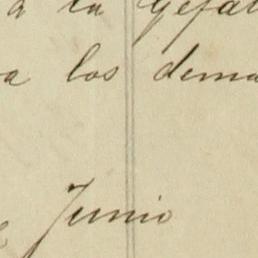 a la Gefat
a los dema
Junio